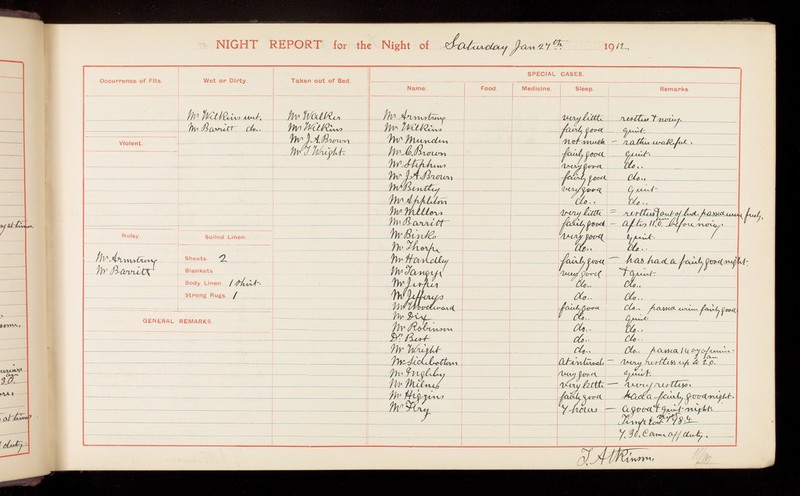 NIGHT REPORT for the Night of Saturday Jan 27th 1912
SPECIAL CASES.
Occurrence of Fits.
Wet or Dirty.
Taken out of Bed.
Name.
Food.
Medicine.
Sleep.
Remarks.
Mr Wilkins wet.
Mr Barritt do..
Mr Walker
Mr Wilkins
Mr J.A. Brown
Mr J Wright.
Violent.
Noisy.
Mr Armstrong
Mr Barritt
Soiled Linen.
Sheets 2
Blankets
Body Linen 1 Shirt.
Strong Rugs. 1
GENERAL REMARKS.
Mr Armstrong very little restless & noisy.
Mr Wilkins fairly good quiet.
Mr Munden not much – rather wakeful.
Mr C. Brown fairly good quiet.
Mr Stephens very good do..
Mr J.A. Brown fairly good do..
Mr Bentley very good quiet.
Mr Appleton do.. do..
Mr Mellors very little = restless & out of bed, passed urine freely.
Mr Barritt fairly good – after 11.0. before noisy.
Mr Binks very good quiet.
Mr Thorpe do.. do..
Mr Handley fairly good – has had a fairly good night.
Mr very good & quiet.
Mr Jasper do.. do..
Mr Jefferys do.. do..
Mr Woodward fairly good do.. passed urine fairly good
Mr Dix do.. quiet
Mr Robinson do.. do..
Dr Best do.. do.
Mr Wright do.. do.. passed 16 oz of urine.
Mr Sidebottom at intervals – very restless up to 2.0. am
Mr Ingleby very good quiet.
Mr Milnes very little – very restless.
Mr Higgins fairly good had a fairly good night.
Mr Fry 7 hours – a good & quiet night.
7.30. Came off duty.
J. Atkinson,